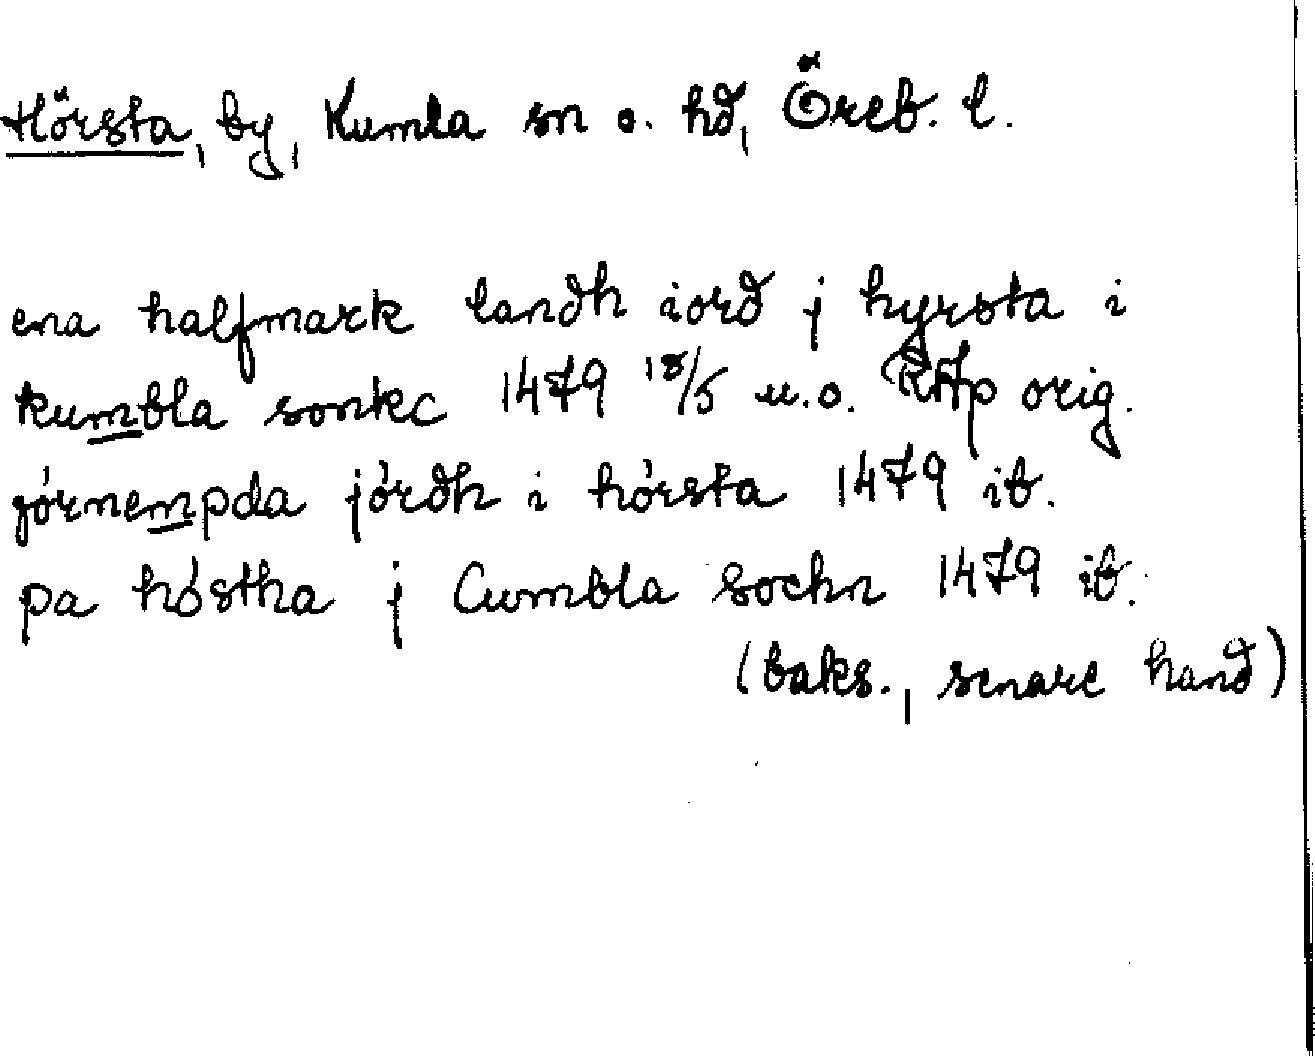 Hörsta, by, Kumla sn o. hd, Öreb. l.
ena halfmark landh iord j hyrsta i
kumbla sonkc 1479 18/5 u.o. RAp orig.
fórnempda jórdh i hórsta 1479 ib.
pa hóstha j Cumbla sochn 1479 ib.
(baks., senare hand)